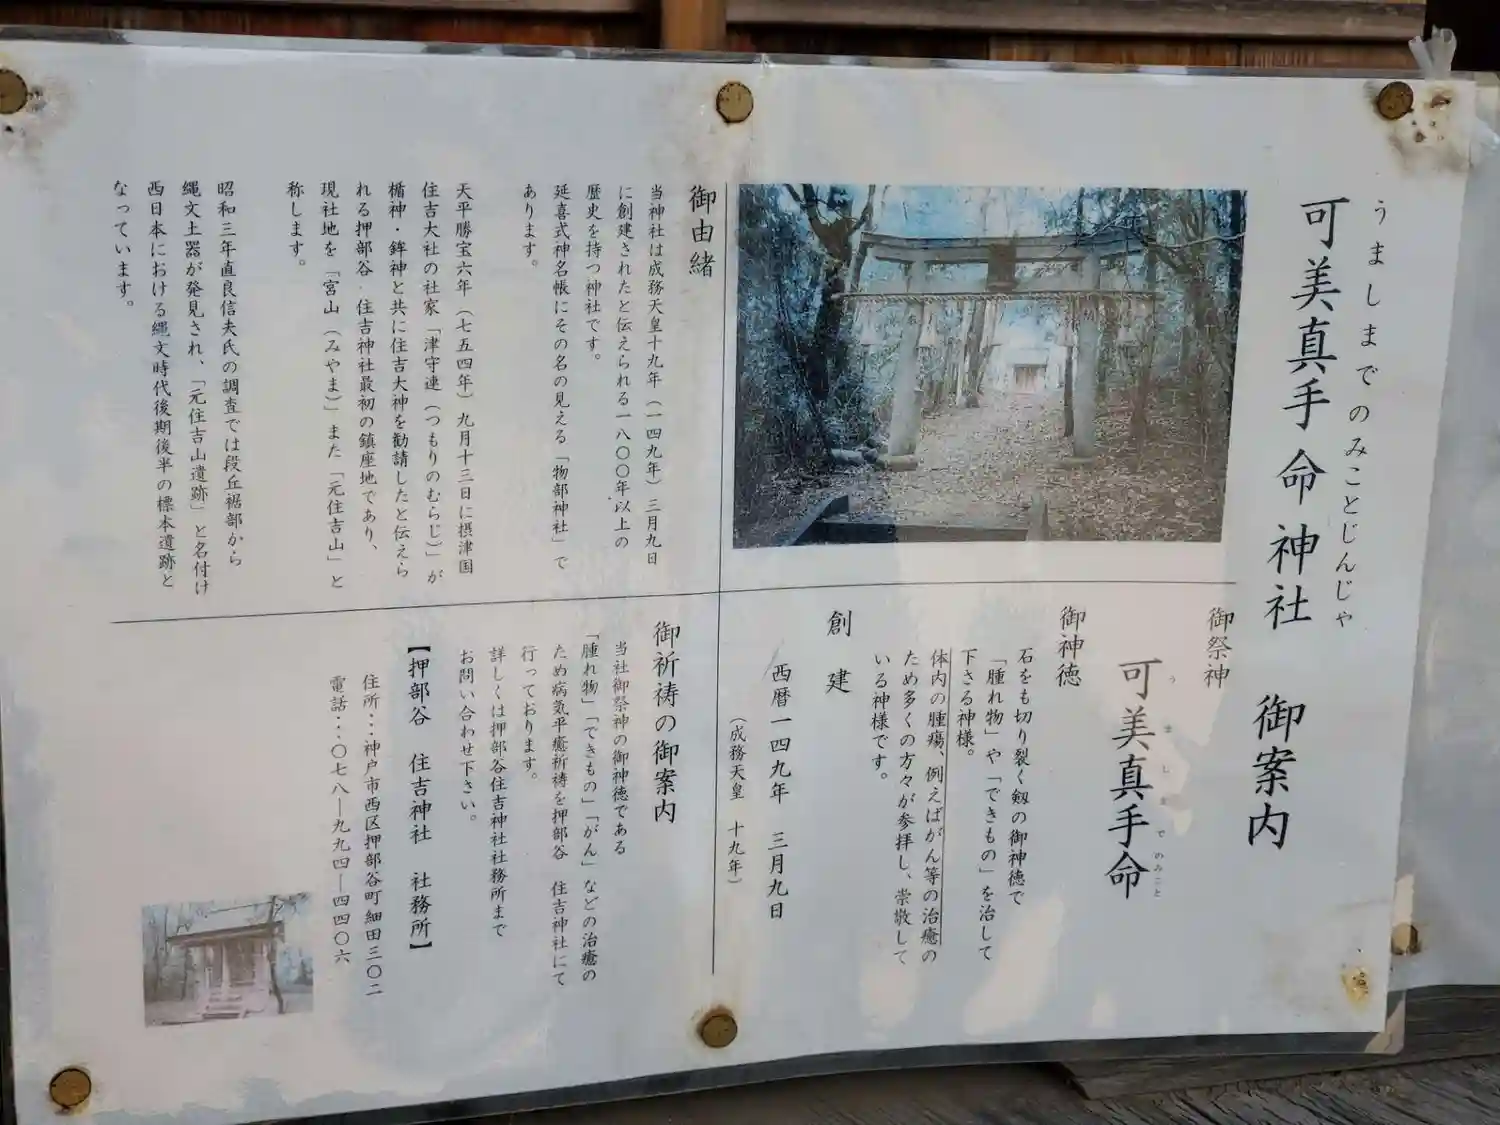 うましまでのみことじんじゃ
可美真手命神社 御案内
御祭神
可美真手命
うましまでのみこと
御神徳
石をも切り裂く剱の御神徳で
「腫れ物」や「できもの」を治して
下さる神様。
体内の腫瘍、例えばがん等の治癒の
ため多くの方々が参拝し、崇敬して
いる神様です。
創建
西暦一四九年 三月九日
(成務天皇 十九年)
御由緒
当神社は成務天皇十九年(一四九年)三月九日
に創建されたと伝えられる一八〇〇年以上の
歴史を持つ神社です。
延喜式神名帳にその名の見える「物部神社」で
あります。
天平勝宝六年(七五四年)九月十三日に摂津国
住吉大社の社家「津守連(つもりのむらじ)」が
楯神・鉾神と共に住吉大神を勧請したと伝えら
れる押部谷 住吉神社最初の鎮座地であり、
現社地を「宮山(みやま)」また「元住吉山」と
称します。
昭和三年直良信夫氏の調査では段丘裾部から
縄文土器が発見され、「元住吉山遺跡」と名付け
西日本における縄文時代後期後半の標本遺跡と
なっています。
御祈祷の御案内
当社御祭神の御神徳である
「腫れ物」「できもの」「がん」などの治癒の
ため病気平癒祈祷を押部谷 住吉神社にて
行っております。
詳しくは押部谷住吉神社社務所まで
お問い合わせ下さい。
【押部谷 住吉神社 社務所】
住所･･･神戸市西区押部谷町細田三〇二
電話･･･〇七八―九九四―四四〇六